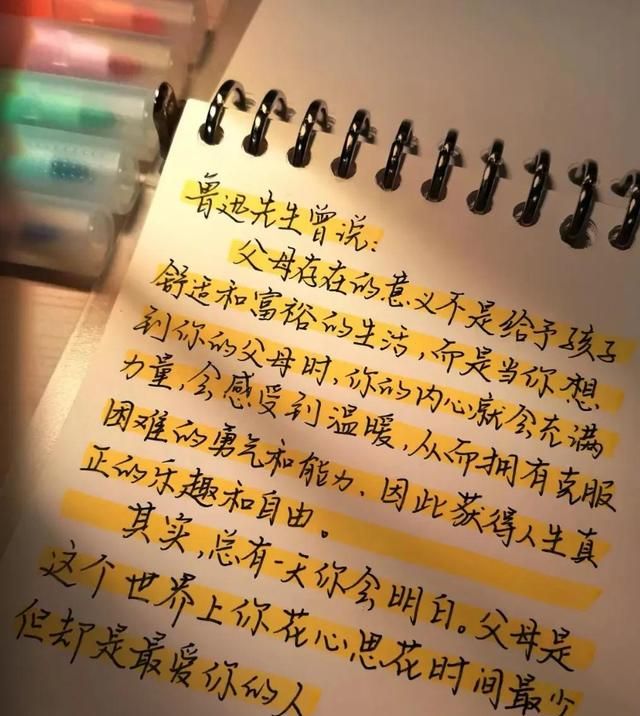 鲁迅先生曾说:
父母存在的意义不是给予孩子
舒适和富裕的生活,而是当你想
到你的父母时,你的内心就会充满
力量,会感受到温暖,从而拥有克服
困难的勇气和能力、因此获得人生真
正的乐趣和自由。
其实,总有一天你会明白。父母是
这个世界上你花心思花时间最少
但却是最爱你的人